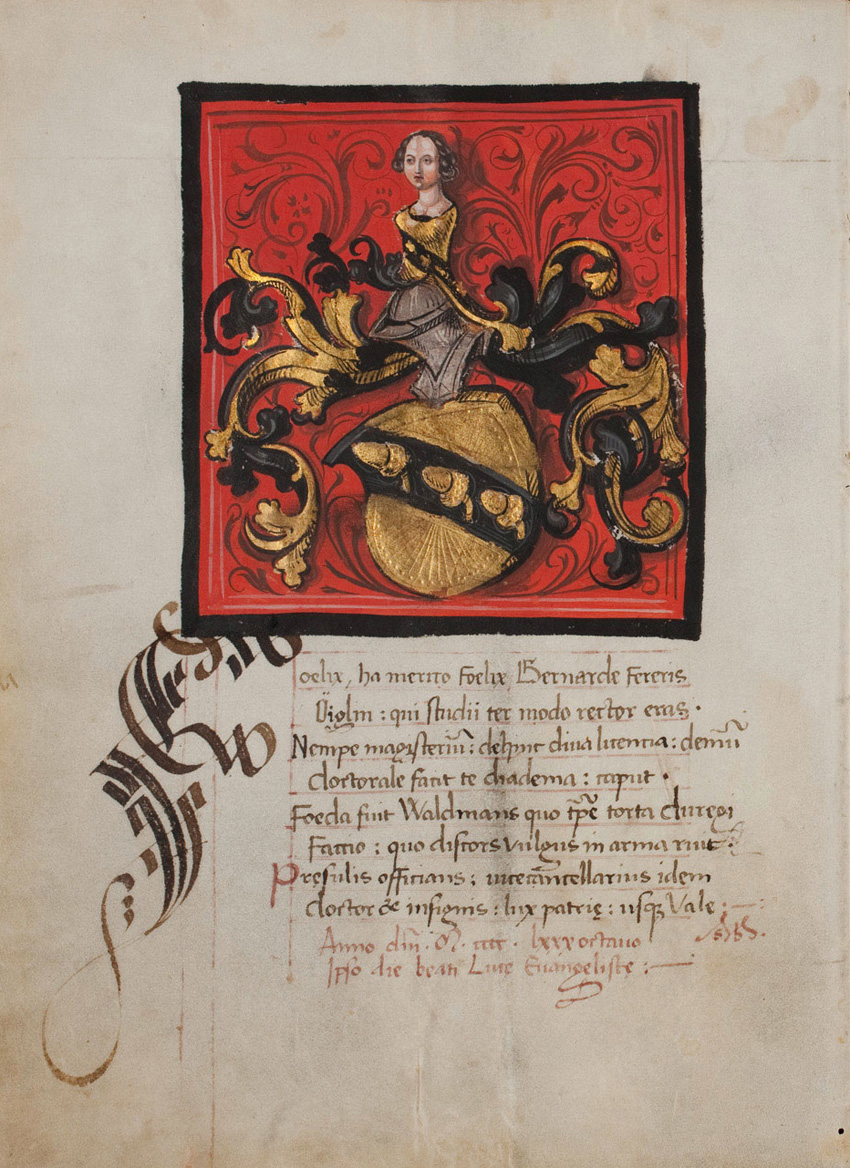 Foelix, ha merito Foelix Bernarde Fereris
Öiglin : qui studii ter modo rector eras ·
Nempe magisteriū : dehinc diva licentia : demū
doctorale facit te diadema : caput ·
Foeda fuit Waldmans quo tp̄e torta duregi
Factio : quo discors vulgus in arma ruit ·
Pręsulis officians : vicecancellarius idem
doctor & insignis : lux patrię : usq3 Vale :
Anno dn̄i · M · cccc · lxxx octavo
Ipso die beati Lucę Evangelistę :